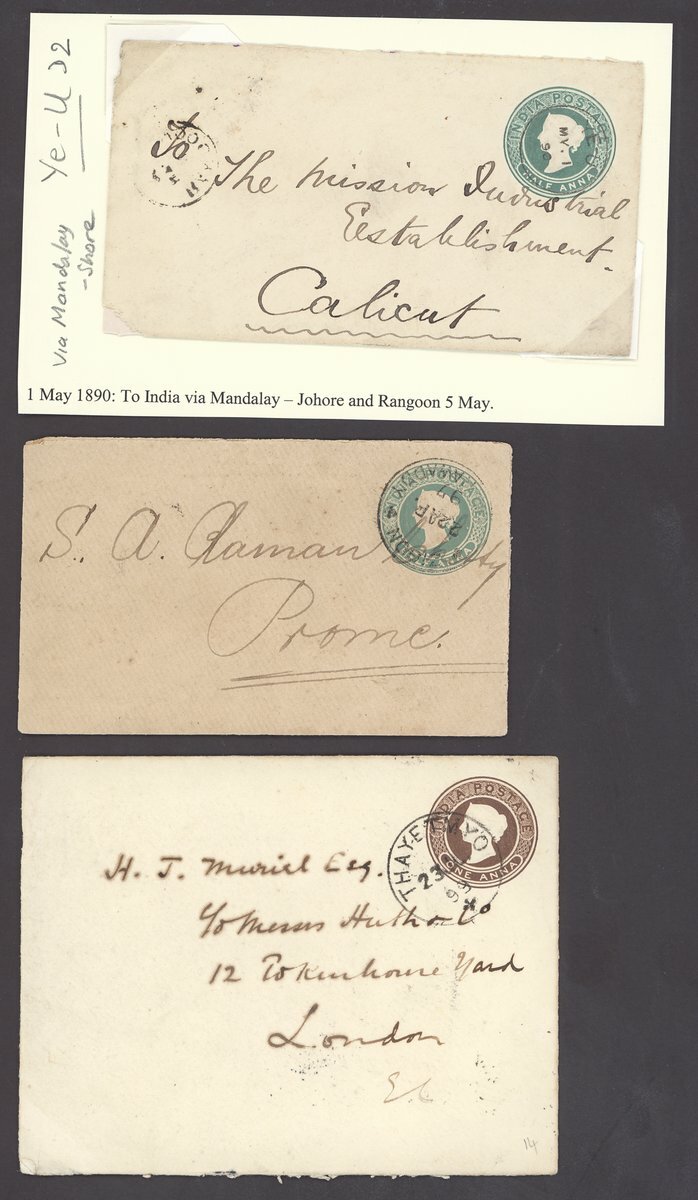 Ye-U D2
Via Mandalay
- Shore
INDIA POSTAGE
HALF ANNA
MY. 1
90
To
The Mission Industrial
Eestablishment.
Calicut
1 May 1890: To India via Mandalay – Johore and Rangoon 5 May.
POSTAGE
22 AP
97
S. A. Raman
Prome.
INDIA POSTAGE
ONE ANNA
THAYETMYO
23
H. J. Muriel Esq.
c/o Messrs Huth & Co
12 Tokenhouse Yard
London
EC
14